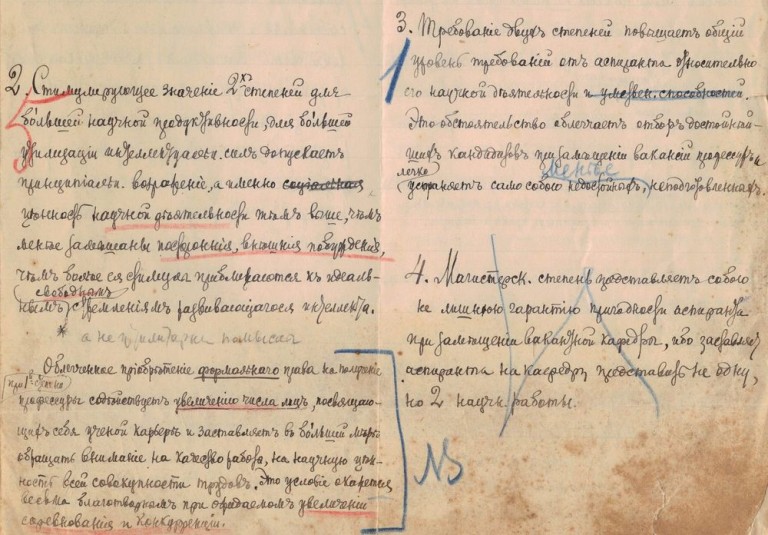 2. Стимулирующее значенiе 2хъ степеней для
5
бо́льшей научной продуктивности, для бо́льшей
утилизацiи интеллектуальн. силъ допускаетъ
принципiальн. возраженiе, а именно социальная
цѣнность научной дѣятельности тѣмъ выше, чѣмъ
менѣе замѣшаны постороннiя, внѣшнiя побужденiя,
чѣмъ болѣе ея стимулы приближаются къ идеаль-
свободнымъ
нымъ стремленiямъ развивающагося интеллекта.
* а не утилитарны помыслы
Облегченное прiобрѣтенiе формальнаго права на полученiе
при 1й степени
профессуры содѣйствуетъ увеличенiю числа лицъ, посвящаю-
щихъ себя ученой карьерѣ и заставляетъ въ бо́льшей мѣрѣ
обращать вниманiе на качество работъ, на научную цѣн-
ность всей совокупности трудовъ. Это условiе окажется
весьма благотворнымъ при ожидаемомъ увеличенiи
соревнованiя и конкурренцiи.
3. Требованiе двухъ степеней повышаетъ общiй
1
уровень требованiй отъ аспиранта относительно
его научной дѣятельности и умствен. способностей.
Это обстоятельство облегчаетъ отборъ достойнѣй-
шихъ кандидатовъ при замѣщенiи вакансiй профессуръ и
легко менѣе
устраняетъ само собою недостойныхъ, неподготовленныхъ.
4. Магистерск. степень представляетъ собою
не лишнюю гарантiю пригодности аспиранта
при замѣщенiи вакантной кафедры, ибо заставляетъ
аспиранта на кафедру представлять не одну,
но 2 научн. работы.
№